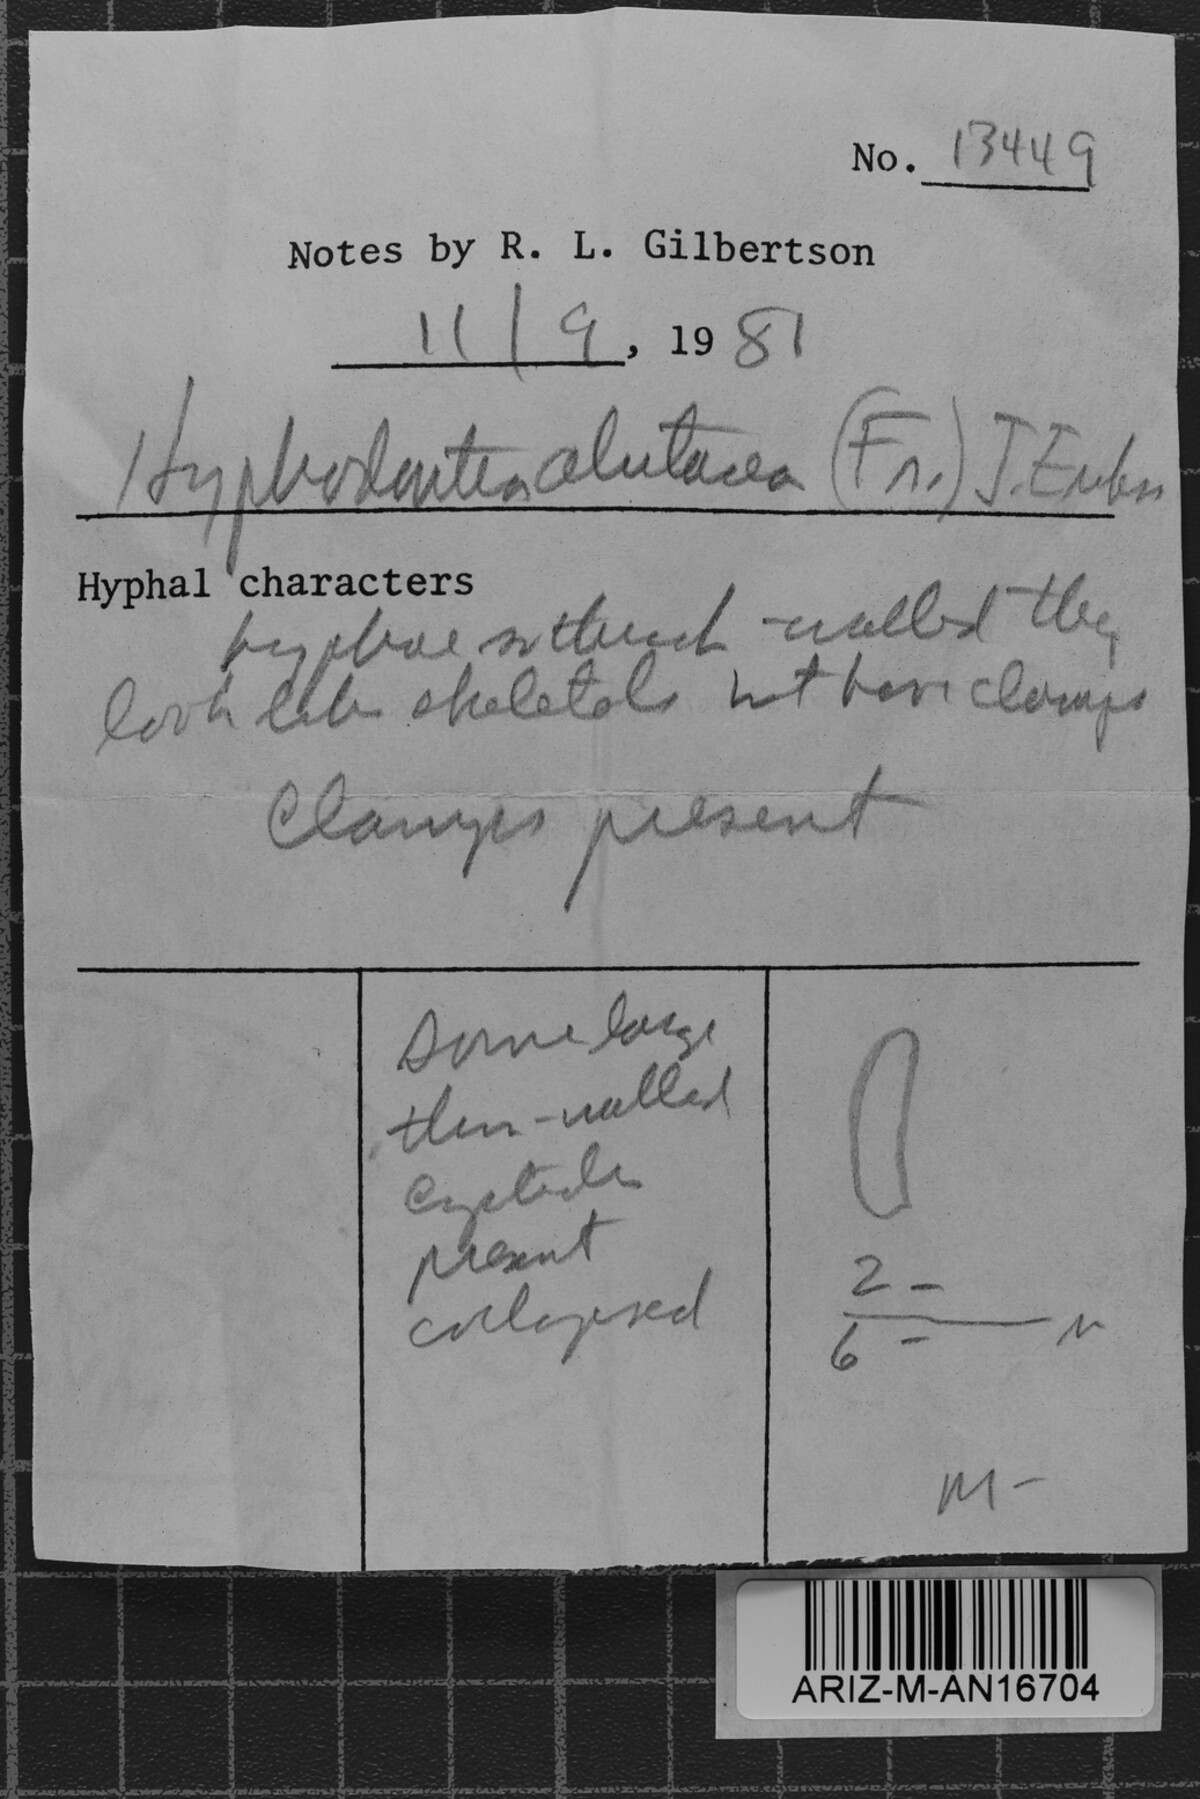 No. 13449
Notes by R. L. Gilbertson
11/9, 1981
Hyphodontia alutacea (Fr.) J. Erikss
Hyphal characters
hyphae so thick-walled they
look like skeletals but have clamps
Clamps present
Some large
thin-walled
cystidia
present
collapsed
2 -
6 - μ
M-
ARIZ-M-AN16704